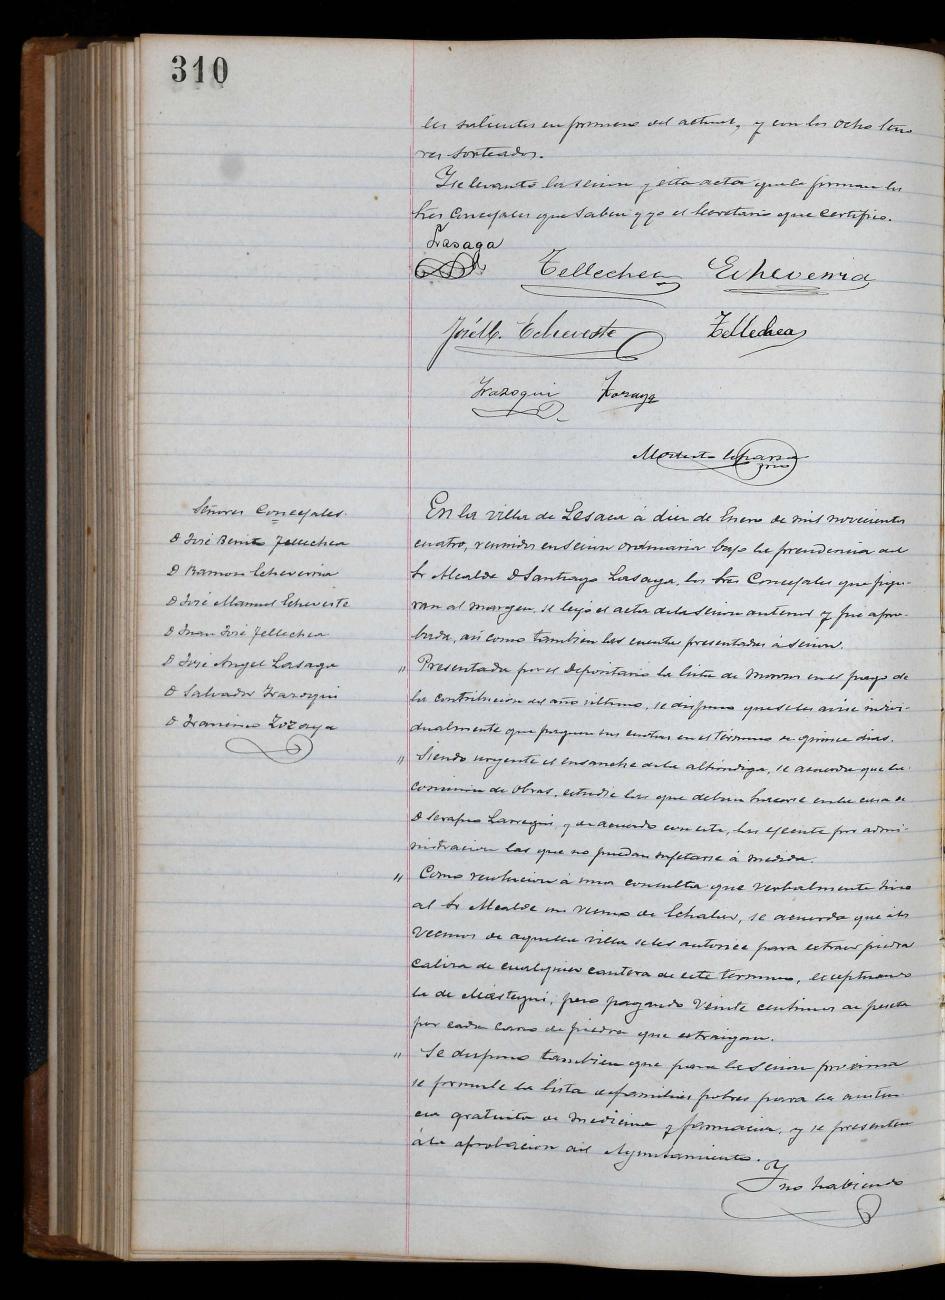 310
les salientes en primero del actual, y con los ocho seño
res sorteados.
Y se levanto la sesion y esta acta que la firman los
Sres Concejales que saben y yo el Secretario que certifico.
Lasaga
Tellechea Echeverria
José M. Echeveste Tellechea
Irazoqui Zozaya
Modesto
Señores Concejales.
D José Benito Tellechea
D Ramon Echeverria
D José Manuel Echeveste
D Juan José Tellechea
D José Angel Lasaga
D Salvador Irazoqui
D Francisco Zozaya
En la villa de Lesaca á diez de Enero de mil novecientos
cuatro, reunidos en sesion ordinaria bajo la presidencia del
Sr Alcalde D Santiago Lasaga, los Sres Concejales que figu-
ran al margen, se leyó el acta de la sesion anterior y fué apro-
bada, asi como tambien las cuentas presentadas á sesion.
" Presentada por el Depositario la lista de morosos en el pago de
la contribucion del año ultimo, se dispuso que se les avise indivi-
dualmente que paguen sus cuotas en el término de quince dias.
" Siendo urgente el ensanche de la alhóndiga, se acuerda que la
comision de obras, estudie las que deban hacerse en la casa de
D Serapio Larregui y de acuerdo con este, las ejecute por admi-
nistracion las que no puedan sujetarse á medida.
" Como resolucion á una consulta que verbalmente hizo
al Sr Alcalde un vecino de Echalar, se acuerda que á los
vecinos de aquella villa se les autorice para extraer piedra
caliza de cualquier cantera de este termino, exceptuando
la de Mastegui, pero pagando veinte centimos de peseta
por cada carro de piedra que extraigan.
" Se dispuso tambien que para la sesion proxima
se formule la lista de familias pobres para la asisten
cia gratuita de medicina y farmacia, y se presenten
á la aprobacion del Ayuntamiento.
Y no habiendo